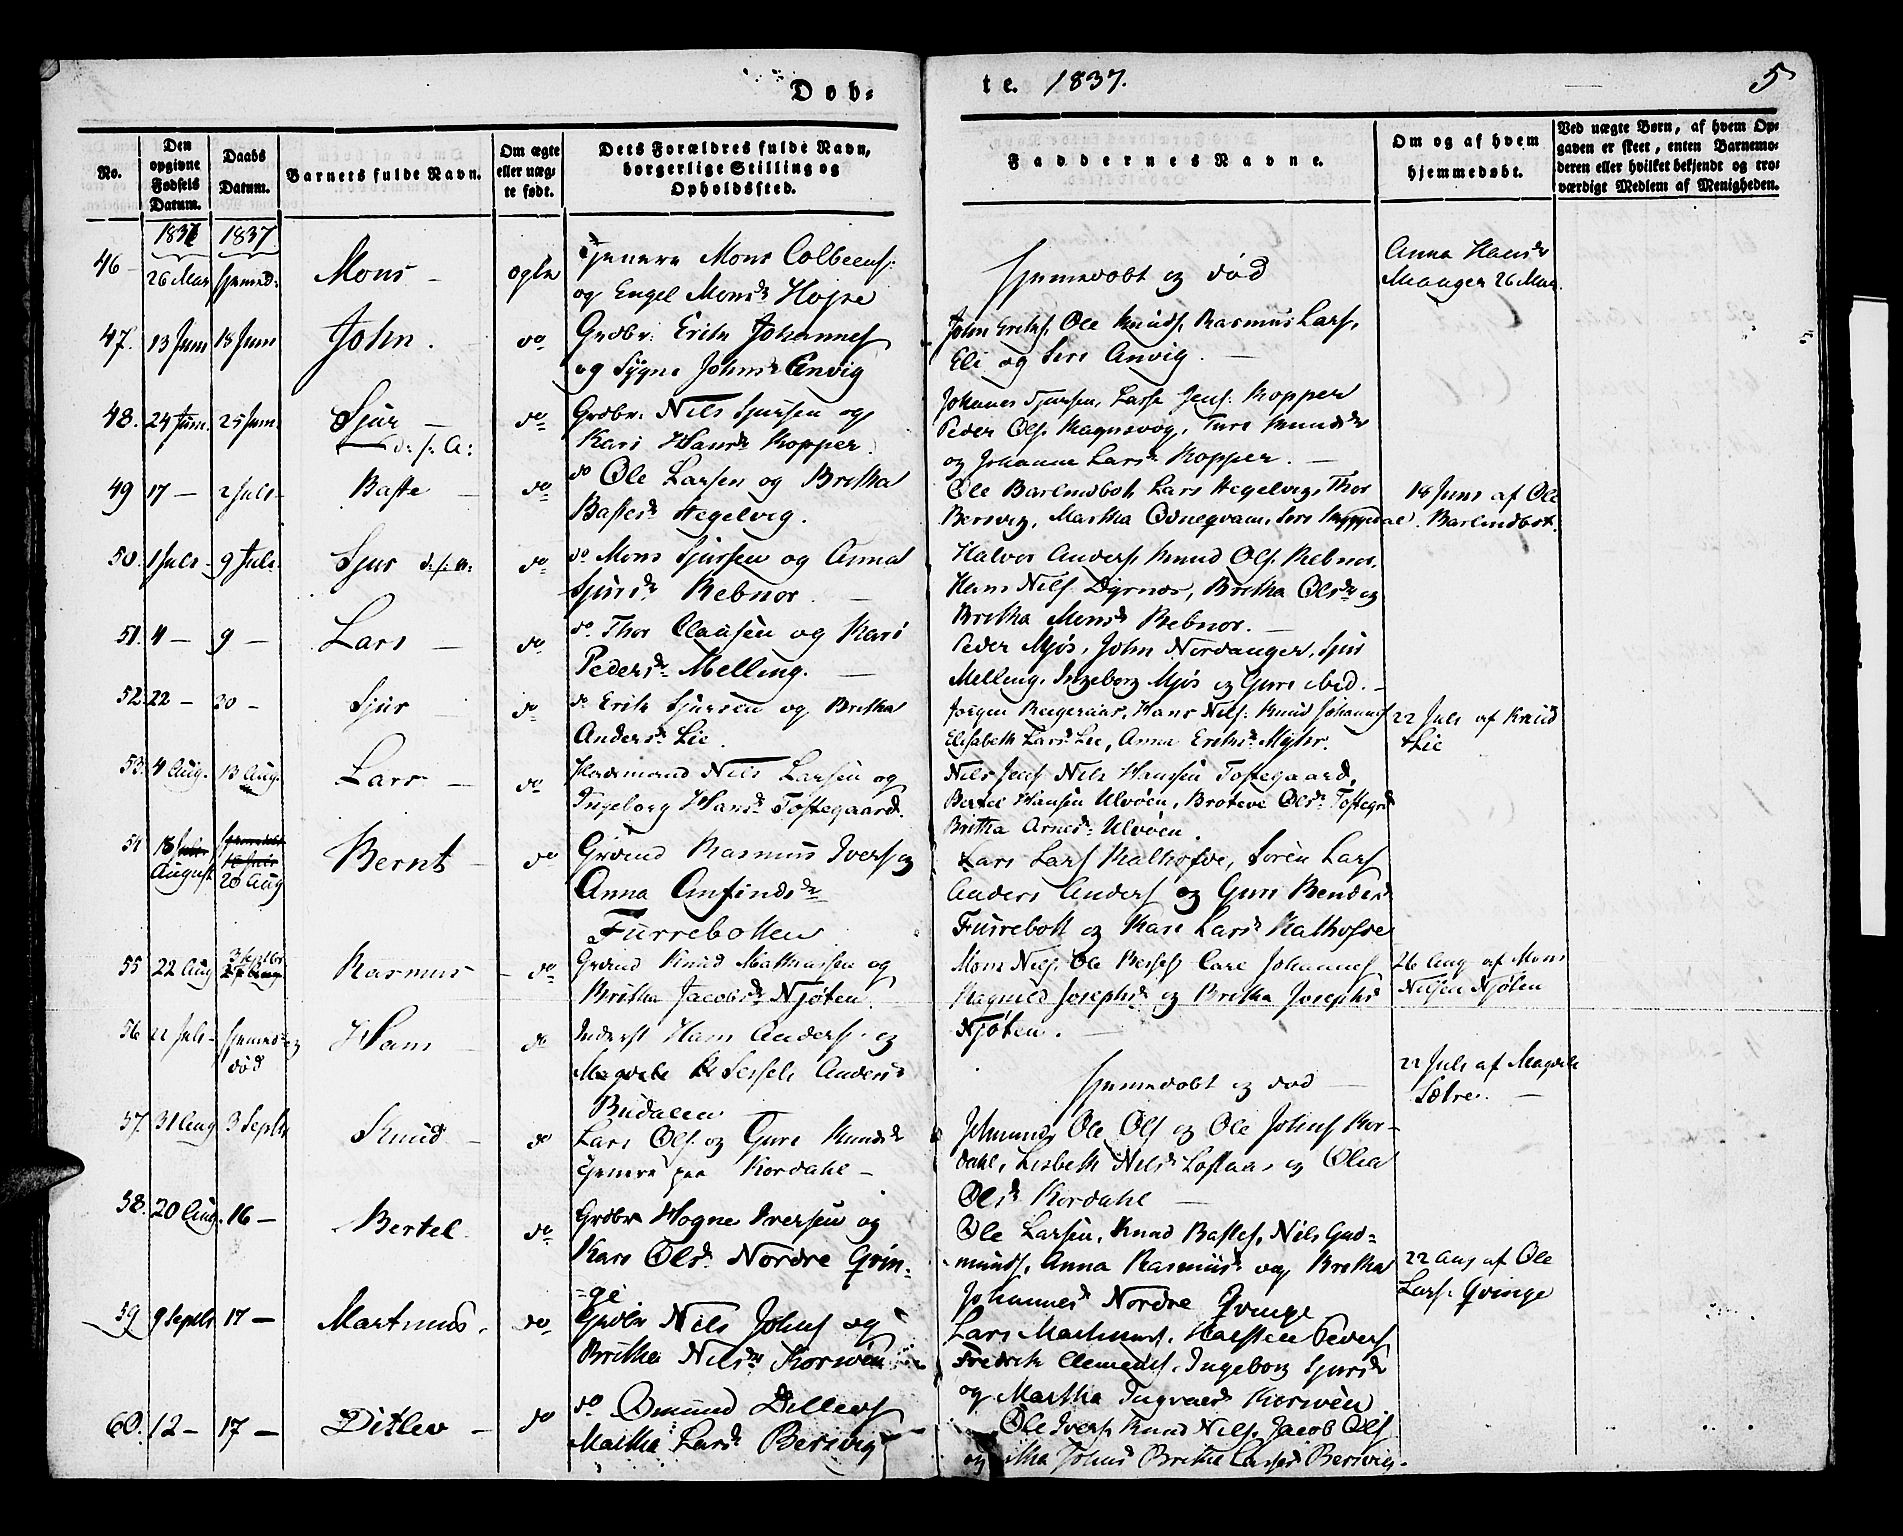 Døb-
te. 1837.
5
No.
Den opgivne Fødsels Datum.
Daabs Datum.
Barnets fulde Navn.
Om ægte eller uægte født.
Dets Forældres fulde Navn, borgerlige Stilling og Opholdssted.
Faddernes Navne.
Om og af hvem hjemmedøbt.
Ved uægte Børn, af hvem Opgaven er skeet, enten Barnemoderen eller hvilket bekjendt og troværdigt Medlem af Menigheden.
1837 1837
46 26 Mai hjemmed: Mons - ægte
Tjenere Mons Colbeens:
og Engel Monsdr Hopse
hjemmedøbt og død
Anna Hansdr
Manger 26 Mai.
47. 13 Juni 18 Juni John. do
Grdbr: Erik Johannes
og Sygni Johnsdr Anvig
John Eriks, Ole Knuds, Rasmus Lars,
Eli og Siri Anvig. -
48. 24 Juni. 25 Juni. Sjur - do
d: f: A:
Grdbr: Nils Sjursen og
Kari Hansdr Kopper.
Johanes Sjursen, Lasse Jens. Kopper
Peder Ols. Kagnevog, Turi Knudsdr
og Johanna Larsdr Kopper. -
49 17 - 2 Juli - Baste - do
do Ole Larsen og Britha
Bastesdr Hegelvig.
Ole Barlindbot Lars Hegelvig, Thor
Bersvig, Martha Odneqvam, Siri
18 Juni af Ole
Barlindbot.
50. 1 Juli. 9 Juli. Sjur d: f: A: do
do Mons Sjursen og Anna
Sjursdr Rebnor. -
Halvor Anders. Knud Ols. Rebnor.
Hans Nils. Dyrnøs, Britha Olsdr og
Britha Monsdr Rebnor. -
51. 4 - 9 - Lars - do
do Thor Clausen og Kari
Pedersdr Melling. -
Peder Mjøs, John Nordanger, Sjur
Melling, Ingeborg Mjøs og Guri ibid. -
52. 22 - 30 - Sjur - do
do Erik Sjursen og Britha
Andersdr Lie.
Jørgen, Hans Nils. Knud Johannes
Elisabeth Larsdr Lie, Anna Eriksdr Myhr.
22 Juli af Knud
Lie
53. 4 Aug. 13 Aug. Lars - do
Huusmand Nils Larsen og
Ingeborg Hansdr Toftegaard.
Nils Jens Nils Hansen Toftegaard,
Bertel Hansen Ulvøen, Broteve Olsdr Toftegrd
Britha Arnesdr Ulvøen.
54 18 August 20 Aug Bernt - do
Grdmd Rasmus Ivers og
Anna Anfindsdr
Furrebotten
Lars Lars Kalhofde, Søren Lars
Anders Anders og Guri Bendixdr
Furrebott og Kari Larsdr Kalhofde
55 22 Aug 3 Septbr Rasmus - do
Grdmd Knud Mathiassen og
Britha Jacobsdr Njøten.
Mons Nils. Ole Carl Johannes
Ragnild Josephsdr og Britha Josephsdr
Njøten. -
26 Aug af Mons
Nilsen Njøten
56 22 Juli - hjemmed: og død Hans - do
Inderst Hans Anders. og
Andersdr
Budalen
hjemmedøbt og død -
22 Juli af Magdele
Sætre. -
57. 31 Aug 3 Septbr Knud - do
Lars Ols. og Guri Knudsdr
Tjenere paa Kordahl -
Ole Ols og Ole Johns Kor-
dahl, Lisbeth Nilsdr Loftaas og Olia
Olsdr Kordahl -
58. 20 Aug. 16 - Bertel. do
Grdbr Hogne Iversen og
Kari Olsdr Nordre Qvin-
-ge
Ole Larsen, Knud Bastes, Nils Gud-
munds. Anna Rasmusdr og Britha
Johannesdr Nordre Qvinge
22 Aug af Ole
Lars. Qvinge
59 9 Septbr 17 - Martinus. do
Grdbr Nils Johns og
Britha Nilsdr Korsøen
Lars Martinus. Karsten Peders
Fredrik Clements, Ingeborg Sjursdr
og Martha Ingvaldsdr Korsøen
60. 12 - 17 - Ditlev - do
do Omund Ditlevs
Martha Larsdr Bersvig
Ole Ivers. Knud Nils. Jacob Ols
og Johnsdr Britha Larsdr Bersvig.